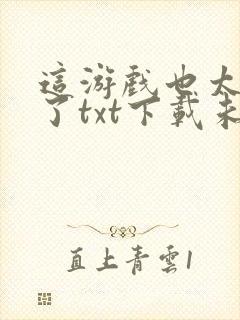 這游戲也太
了txt下載未
直上青雲1